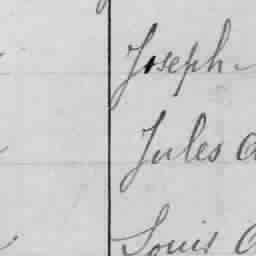 Joseph
Jules
Louis